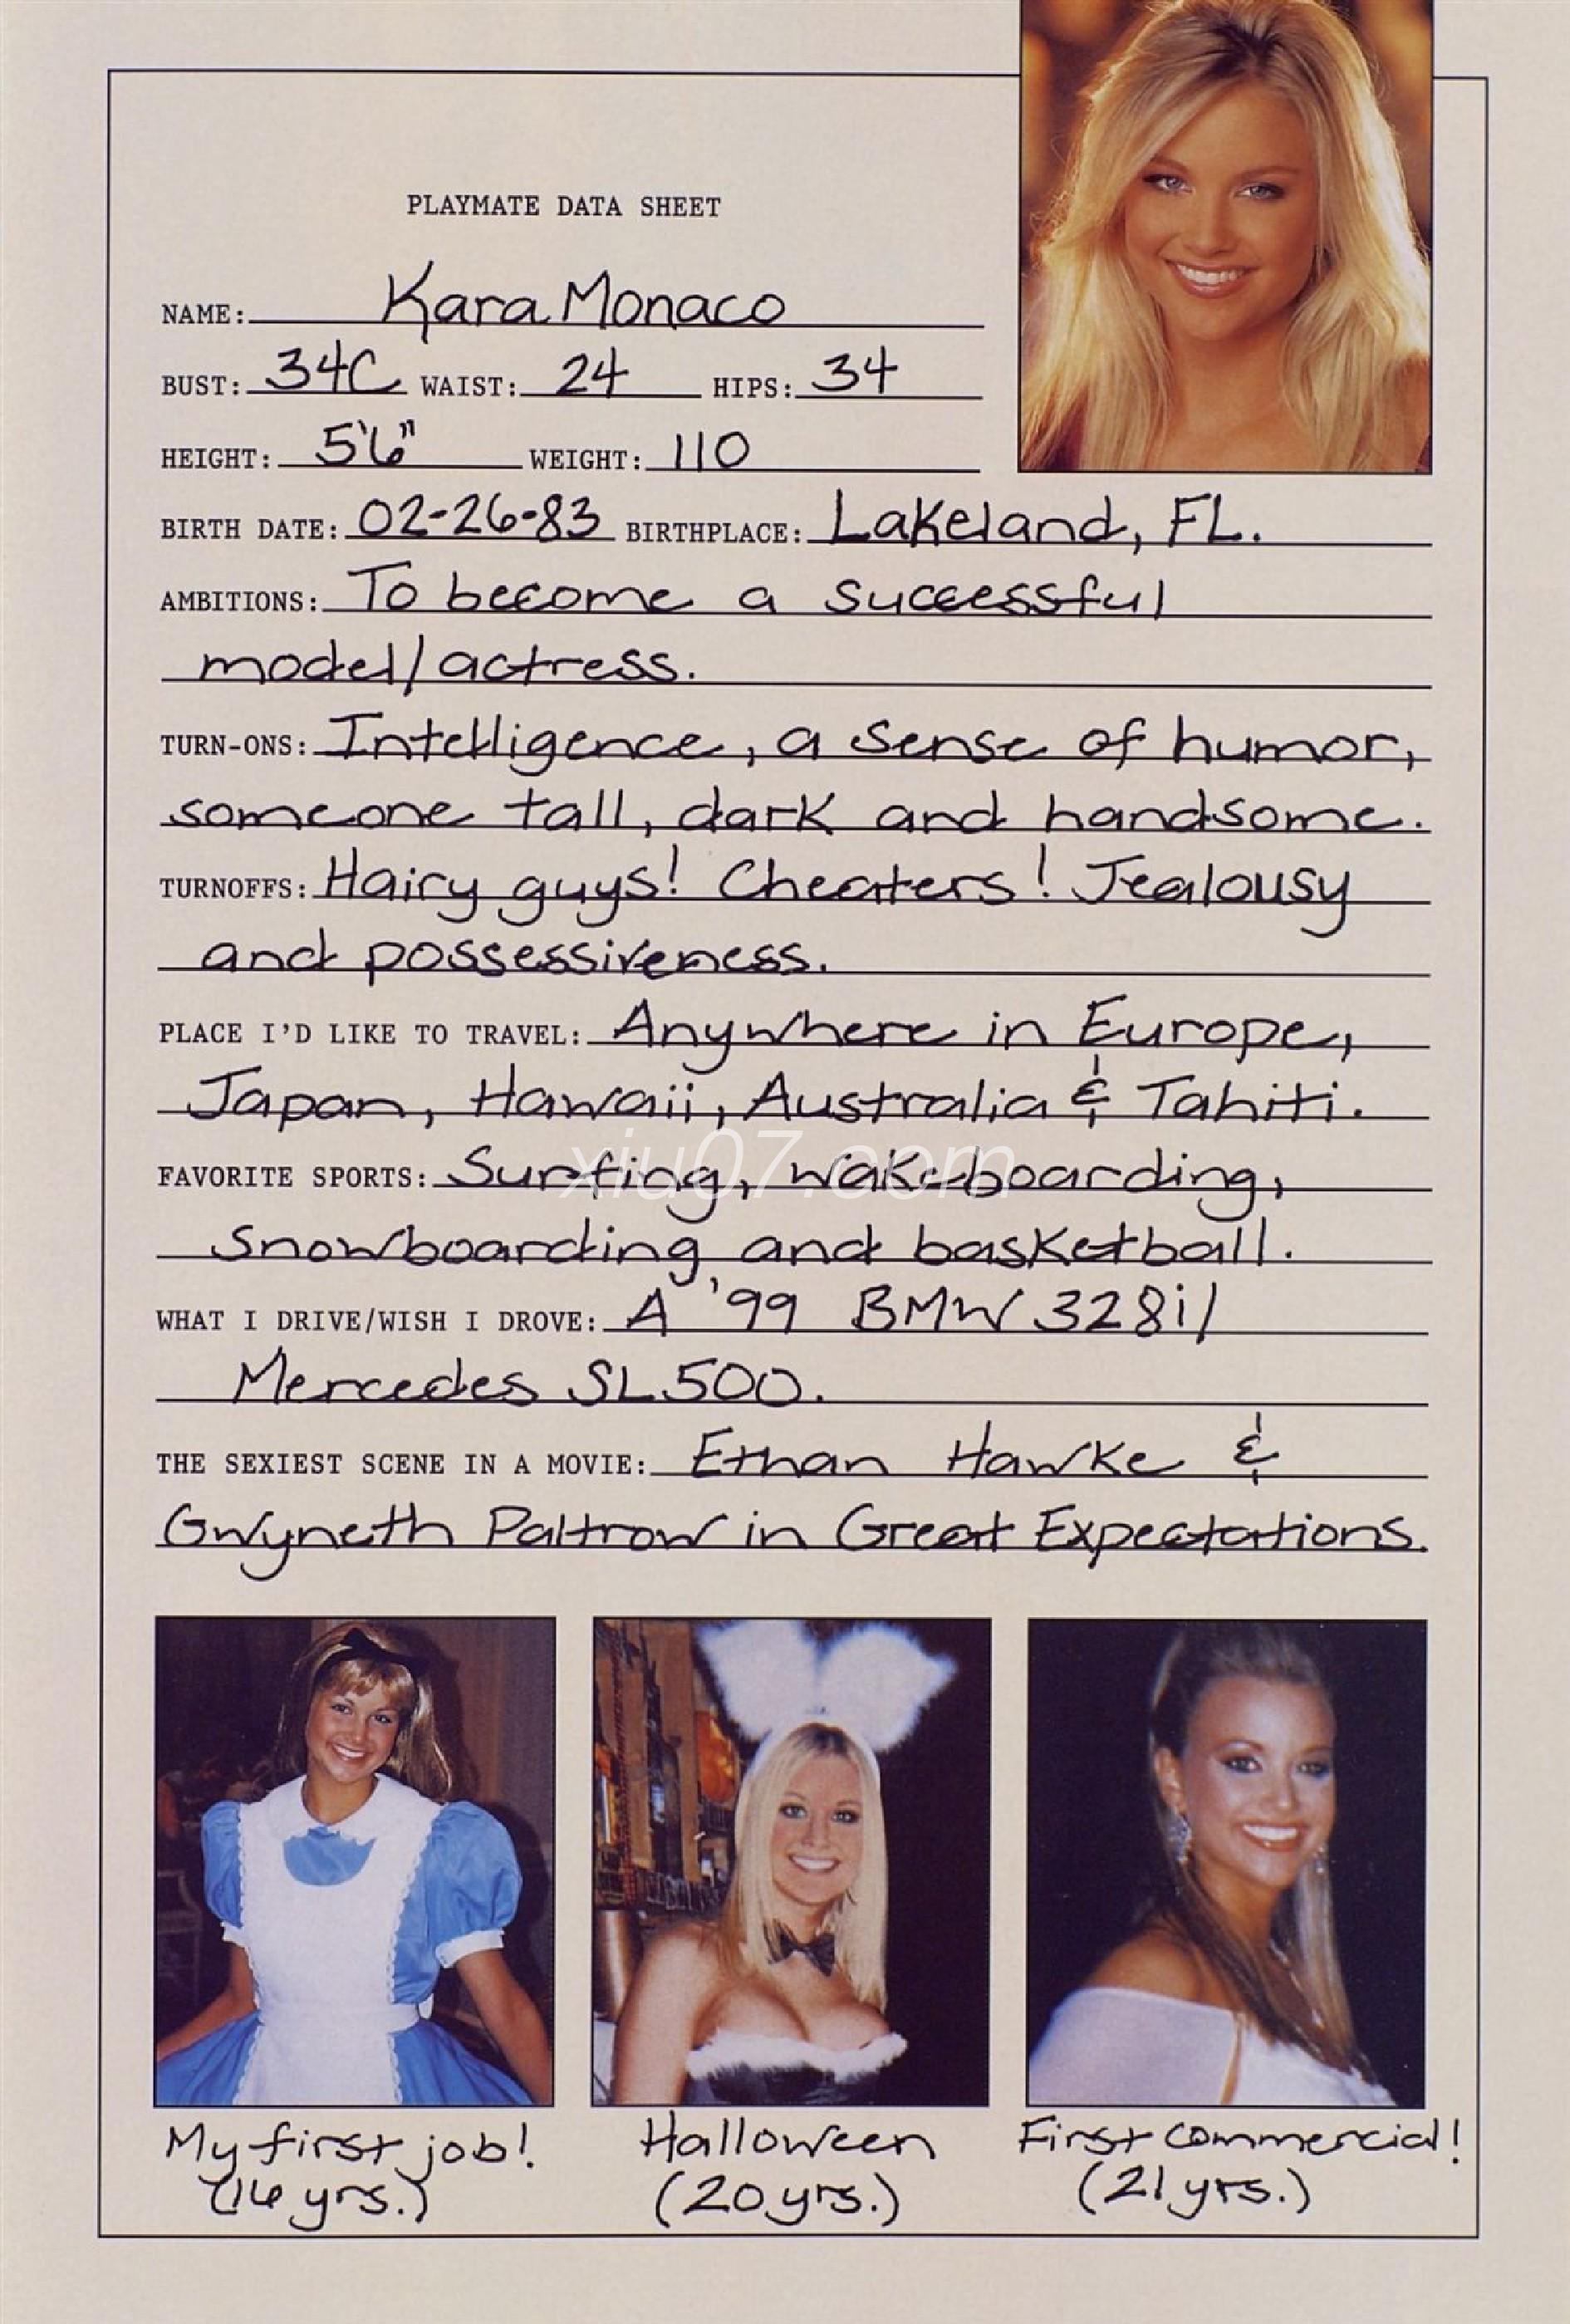 PLAYMATE DATA SHEET
NAME: Kara Monaco
BUST: 34C WAIST: 24 HIPS: 34
HEIGHT: 5'6" WEIGHT: 110
BIRTH DATE: 02-26-83 BIRTHPLACE: Lakeland, FL.
AMBITIONS: To become a successful
model/actress.
TURN-ONS: Intelligence, a sense of humor,
someone tall, dark and handsome.
TURNOFFS: Hairy guys! Cheaters! Jealousy
and possessiveness.
PLACE I'D LIKE TO TRAVEL: Anywhere in Europe,
Japan, Hawaii, Australia & Tahiti.
xiu07.com
FAVORITE SPORTS: Surfing, wakeboarding,
snowboarding and basketball.
WHAT I DRIVE/WISH I DROVE: A '99 BMW 328i/
Mercedes SL500.
THE SEXIEST SCENE IN A MOVIE: Ethan Hawke &
Gwyneth Paltrow in Great Expectations.
My first job!
(16 yrs.)
Halloween
(20 yrs.)
First commercial!
(21 yrs.)